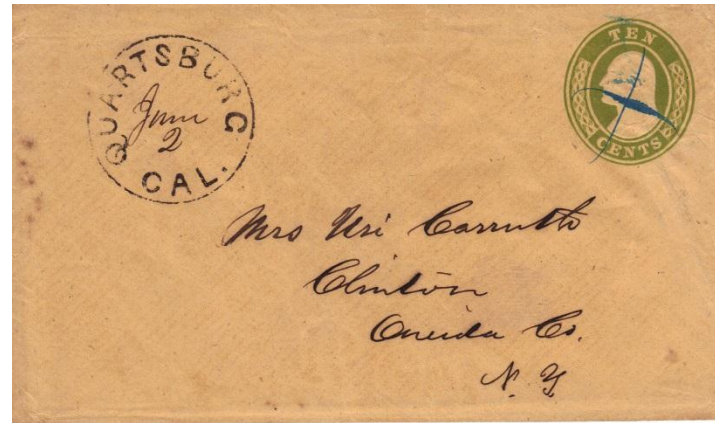 QUARTSBURG
June
2
CAL.
TEN
CENTS
Mrs Uri Carruth
Clinton
Oneida Co.
N. Y.